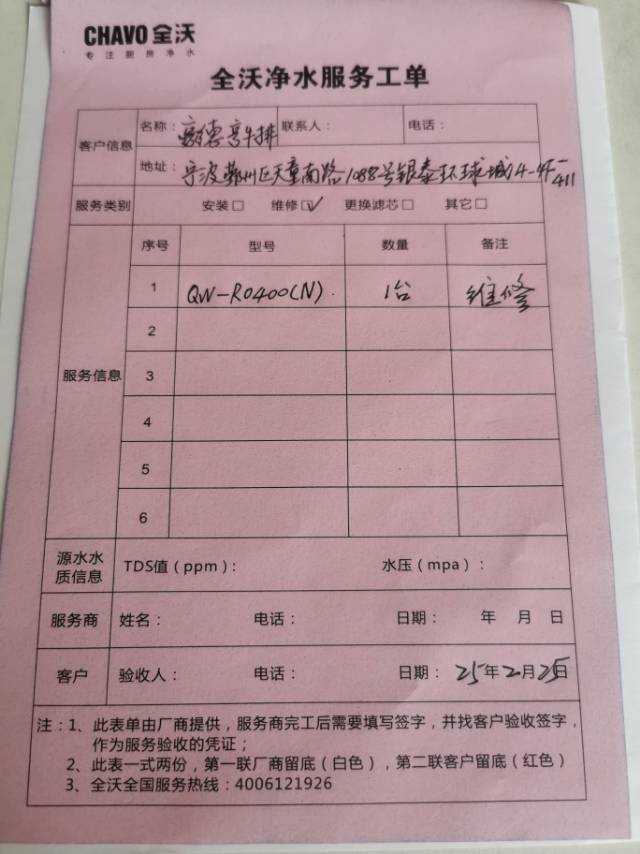 CHAVO 全沃
专注厨房净水
全沃净水服务工单
客户信息
名称：豪德亨牛排 联系人： 电话：
地址：宁波鄞州区天童南路1088号银泰环球城4-4F-411
服务类别 安装□ 维修☑ 更换滤芯□ 其它□
序号 型号 数量 备注
1 QW-RO400(N) 1台 维修
2
服务信息 3
4
5
6
源水水质信息 TDS值（ppm）： 水压（mpa）：
服务商 姓名： 电话： 日期： 年 月 日
客户 验收人： 电话： 日期：25年2月25日
注：1、此表单由厂商提供，服务商完工后需要填写签字，并找客户验收签字，
作为服务验收的凭证；
2、此表一式两份，第一联厂商留底（白色），第二联客户留底（红色）
3、全沃全国服务热线：4006121926